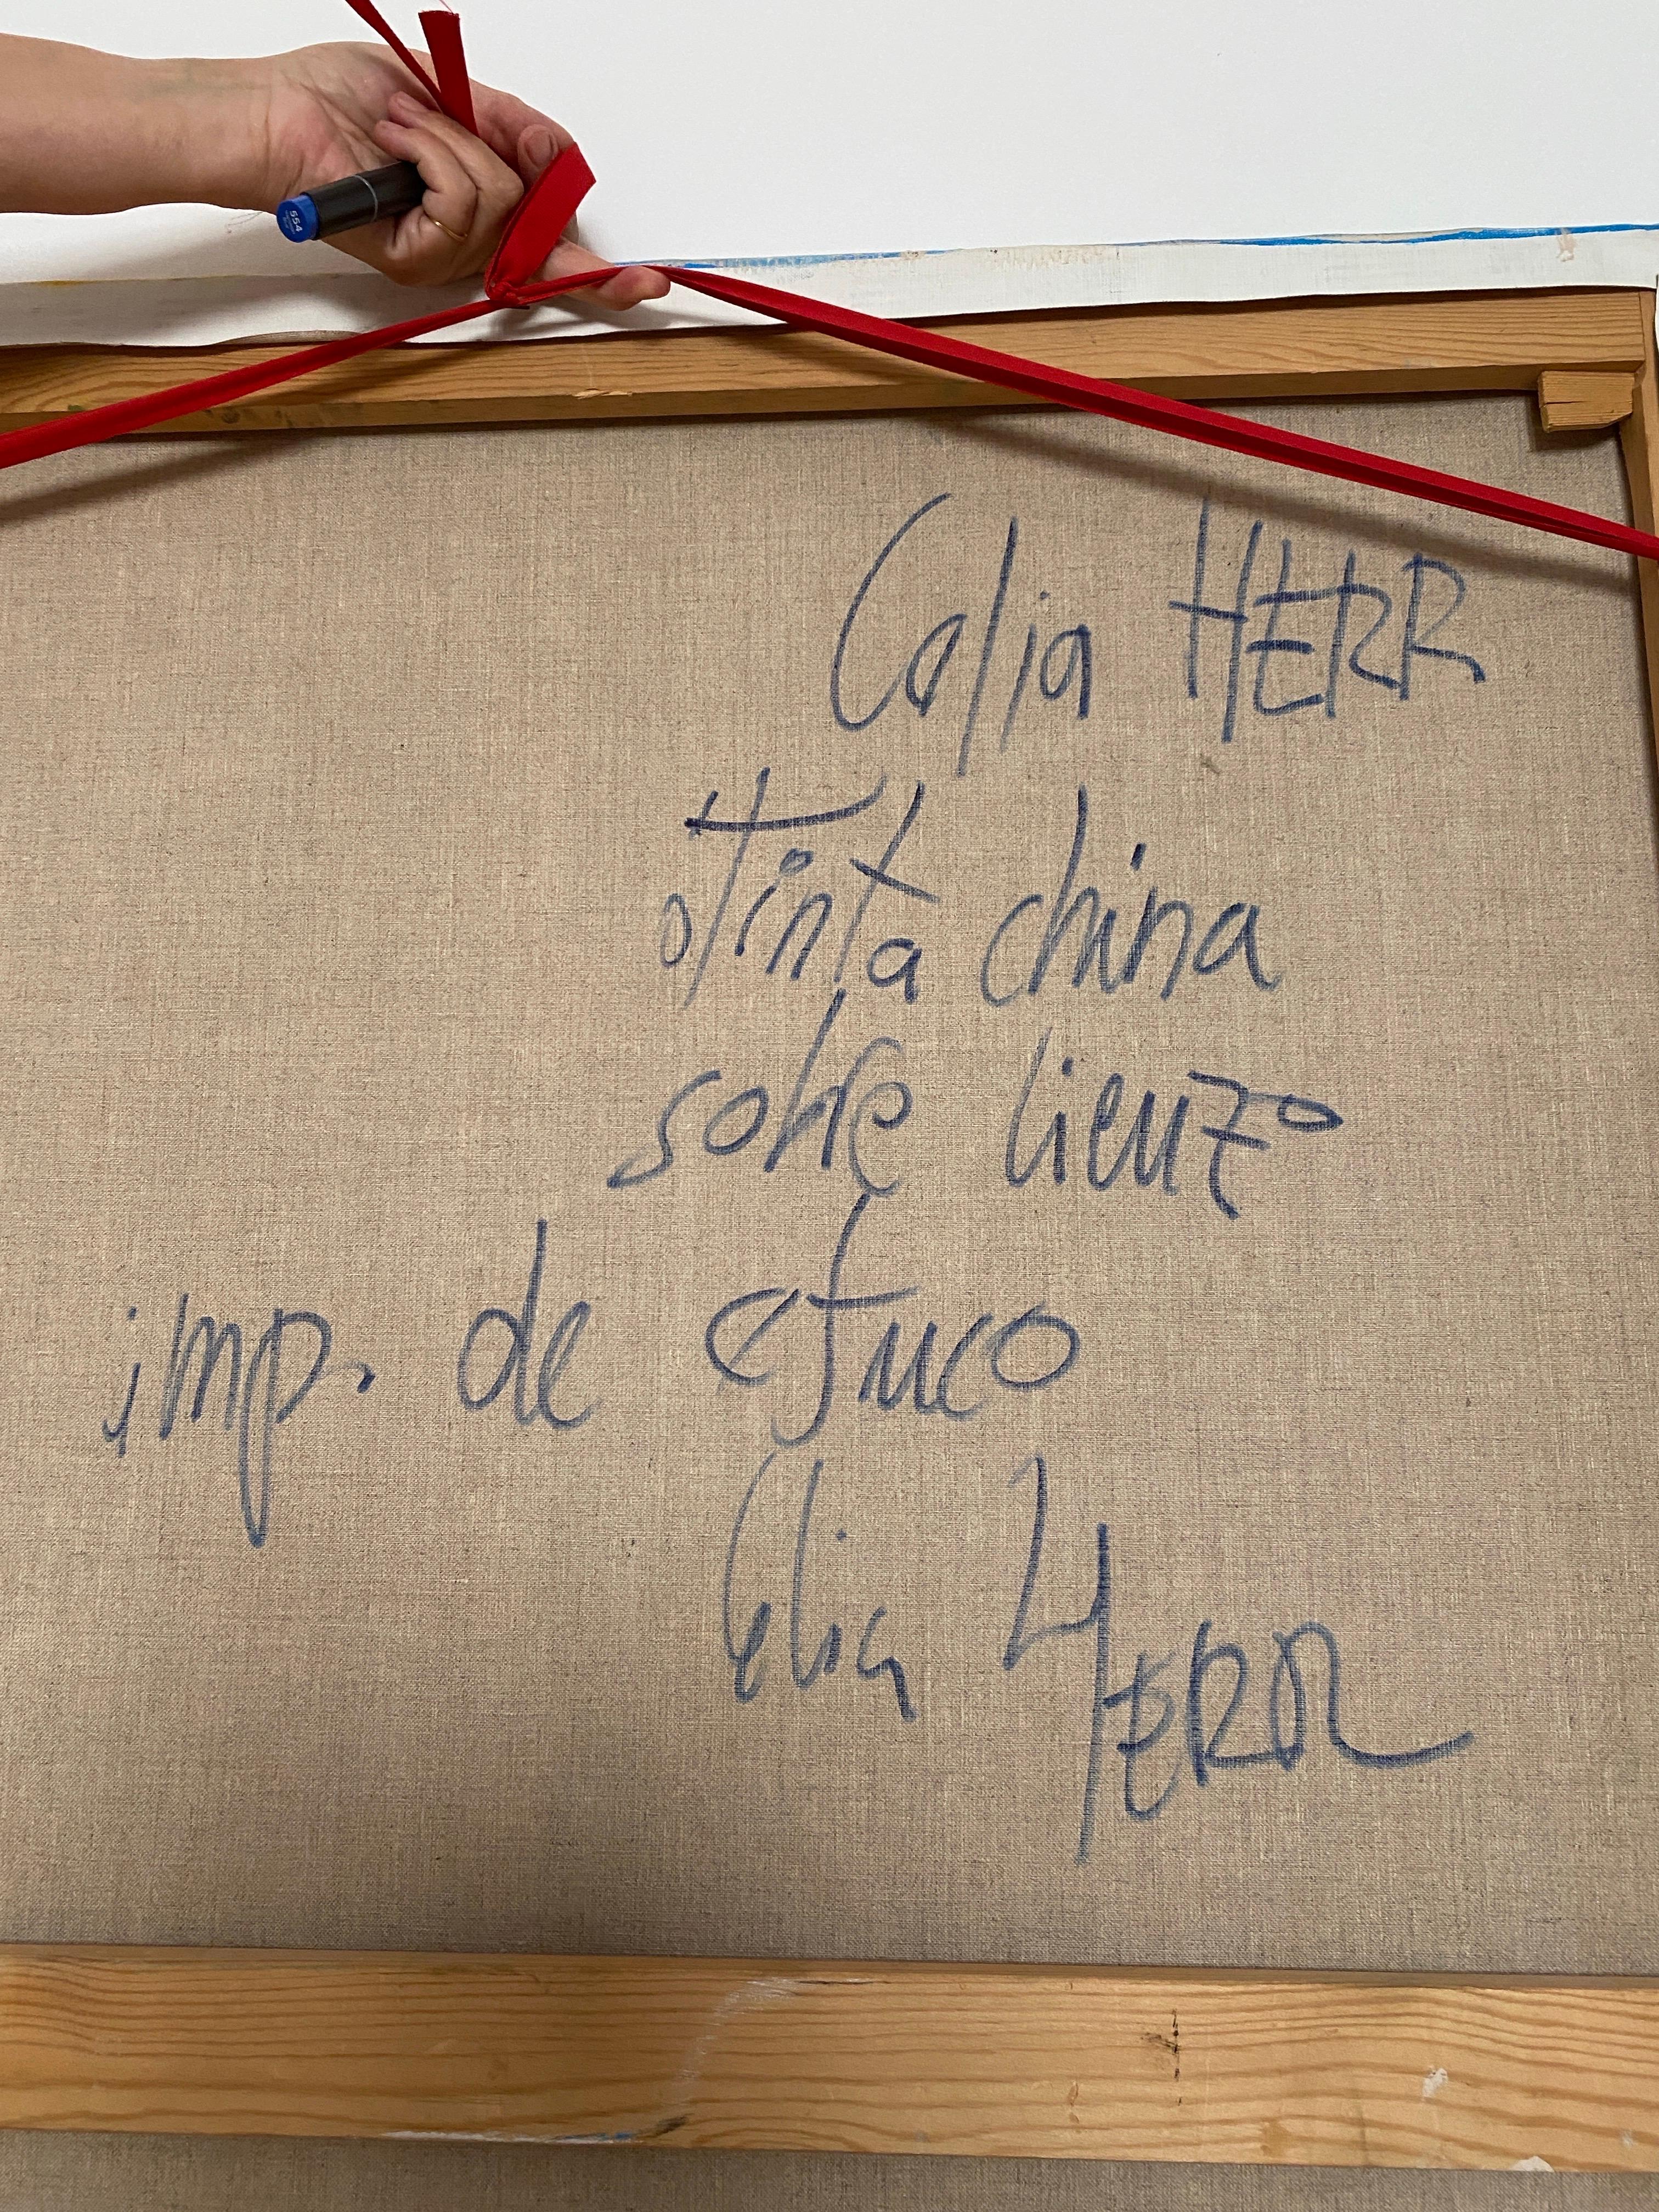 554
Calia HERR
Tinta china
sobre lienzo
imp. de etuco
Celia HERR